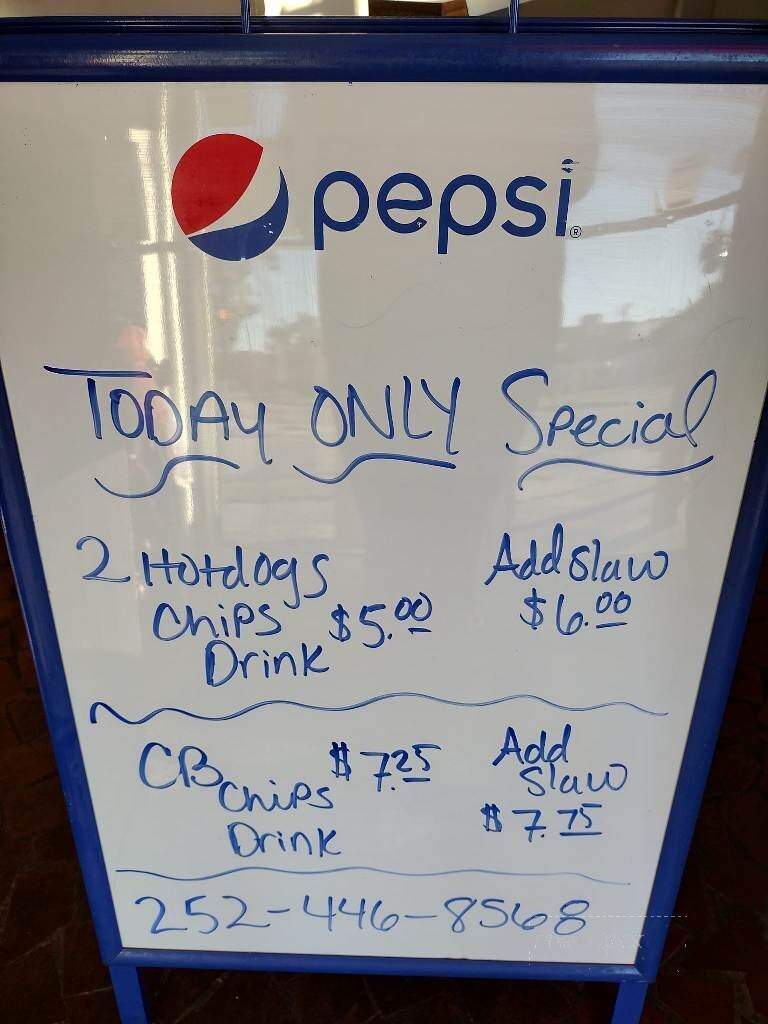 pepsi®
TODAY ONLY Special
2 Hotdogs
Chips $5.00
Drink
Add Slaw
$6.00
CB $7.25
Chips
Drink
Add
Slaw
$7.75
252-446-8568